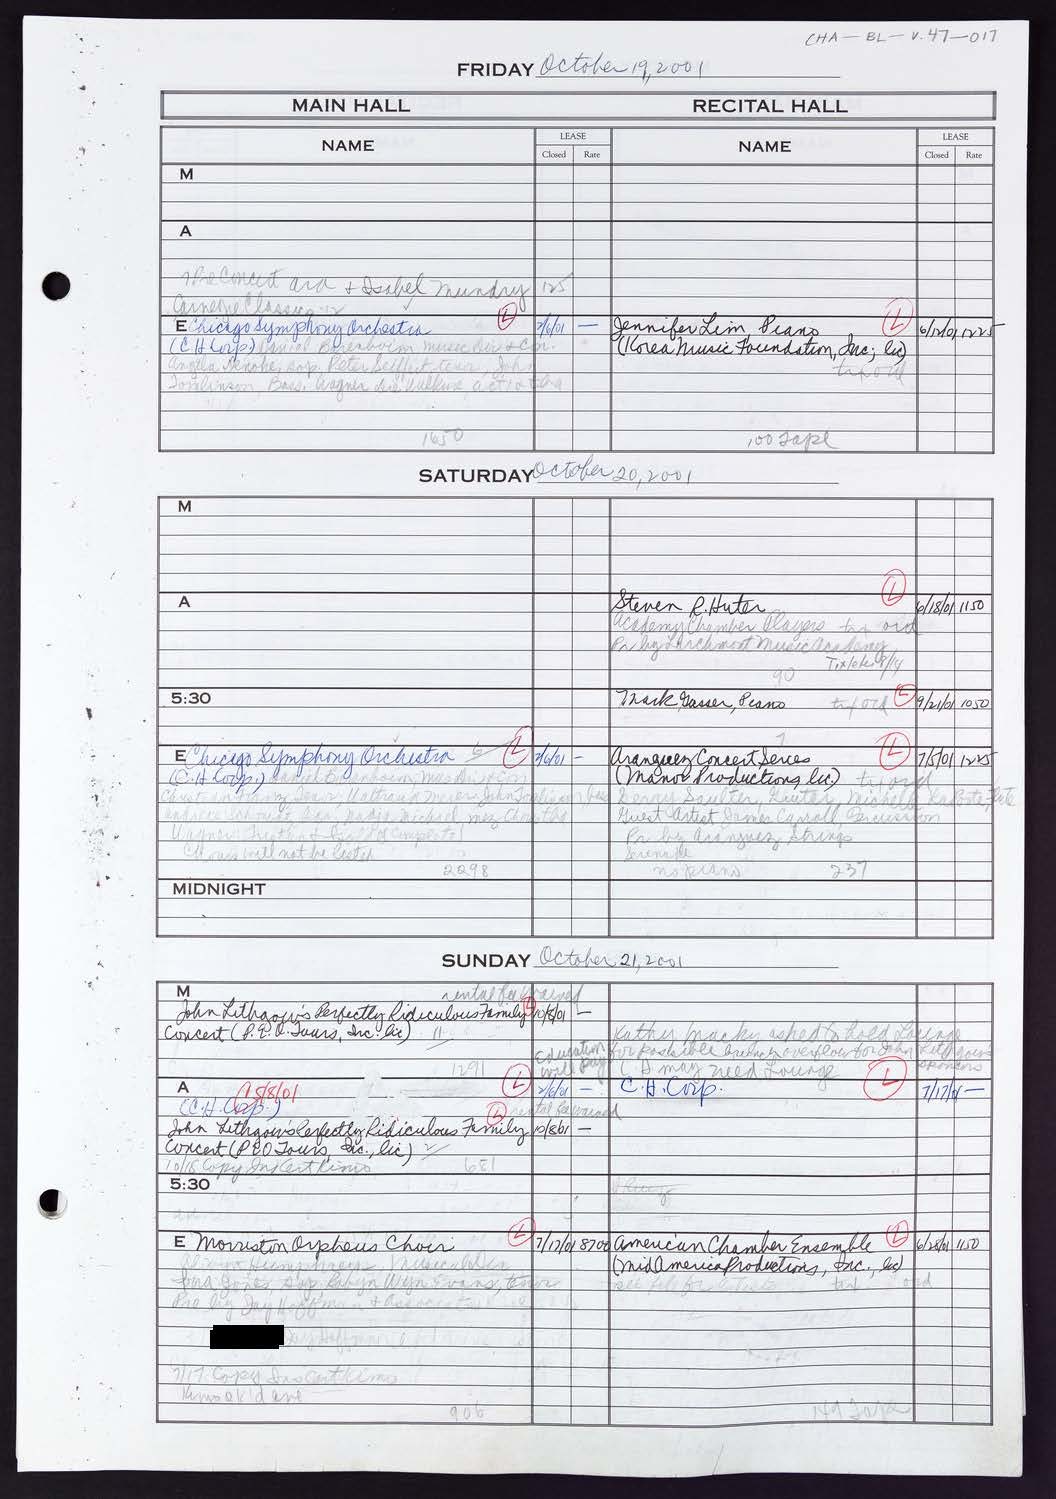 CHA-BL-V.47-017
FRIDAY October 19, 2001
MAIN HALL RECITAL HALL
NAME LEASE Closed Rate NAME LEASE Closed Rate
M
A
Pre Concert and + Isabel Mundry 125
Carnegie
E Chicago Symphony Orchestra L 2/6/01 — Jennifer Lim, Piano L 6/12/01 1225
(C H Corp) Daniel Barenboim music Dir + Con. (Korea Music Foundation, Inc; lic)
Angela Denoke, sop. Peter Seiffert tenor, John tix ord
Tomlinson, Bass. Wagner Die Walkure act 1
1650 100 Tape
SATURDAY October 20, 2001
M
A Steven R. Huter L 6/18/01 1150
Academy Chamber Players tix ord
Pr by Larchmont Music Academy
8/14
90
5:30 Mark Gasser, Piano tix ord L 9/21/01 1050
E Chicago Symphony Orchestra L 2/6/01 — Aranguez Concert Series L 7/5/01 1225
(C.H. Corp.) Daniel Barenboim Mus Dir + Con (Manor Productions, lic.) tix ord
Christian Franz, Tenor, Waltraud Meier, John Tomlinson bass Guitar, Michelle LaPorte Flute
Guest Artist James Carroll, Percussion
Wagner Tristan & Isolde (Complete) Pr by Aranguez Strings
Chorus will not be listed Serenade
2298 no piano 237
MIDNIGHT
SUNDAY October 21, 2001
M rental fee waived
John Lithgow's Perfectly Ridiculous Family L 10/8/01 —
Concert (P.E.O. Tours, Inc. lic) 11 Kathy asked to hold Lounge
Education will pay for possible brunch overflow for John Lithgow's sponsors
1291 CD may need Lounge
A 10/8/01 L 2/6/01 — C.H. Corp. L 7/17/01 —
(C.H. Corp.) L rental fee waived
John Lithgow's Perfectly Ridiculous Family 10/8/01 —
Concert (P E O Tours, Inc., lic)
10/18 Copy In Cert Kims 681
5:30
E Morriston Orpheus Choir L 7/17/01 8700 American Chamber Ensemble L 6/28/01 1150
Humphreys Musical Dir (MidAmerica Productions, Inc., lic)
sop Robyn Wyn Evans, tenor tix ord
Pre by Jay Hoffman + Associates
Jay Hoffman
7/17 Copy Ins Cert Kims
Kims ok'd
906 149 Tape